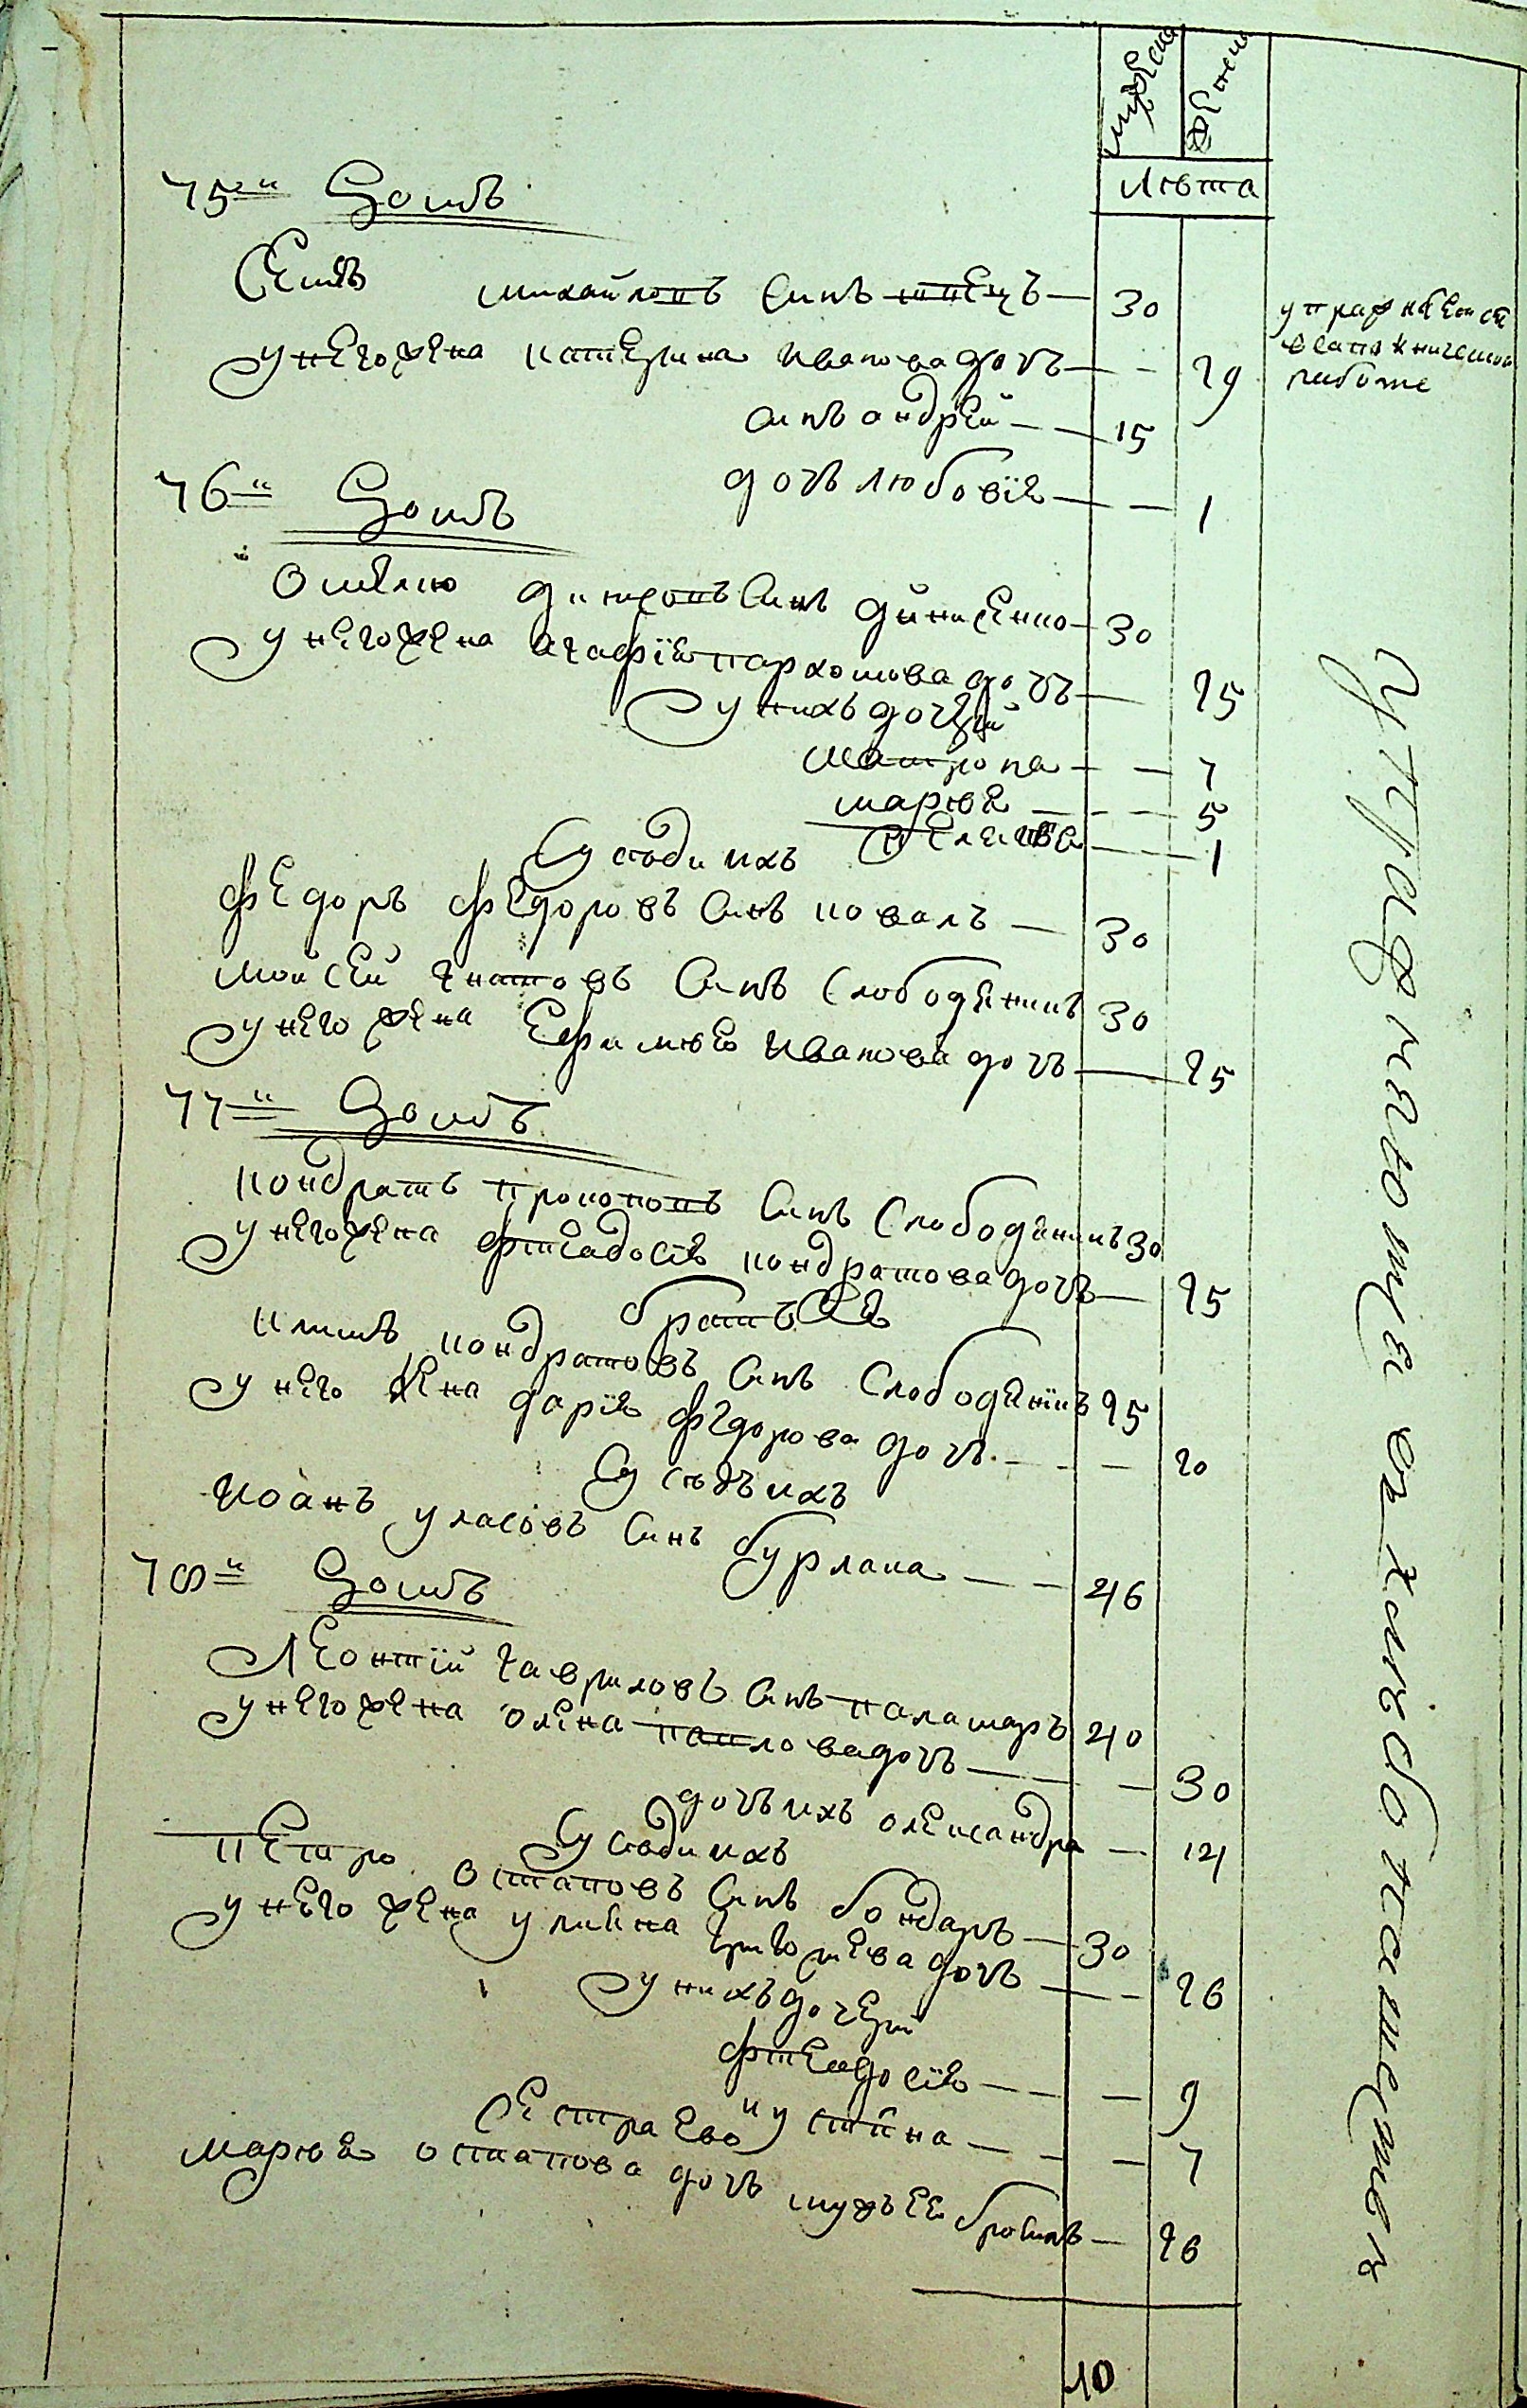 мужеска женск
Лѣта
75й Домъ
Семенъ михайловъ синъ швецъ — 30
у него жена катерина иванова дочь — — 29
упражняется в сапожнической работе
синъ андрей — — 15
дочь любовія — — 1
76й Домъ
Омеляно синъ дениCенко — 30
у него жена агафія пархомова дочь — 25
у нихъ дочерй
матрона — — 7
марія — — 5
пелагея — — 1
Сусѣди ихъ
федоръ федоровъ синъ коваль — 30
мойсей гнатовъ синъ слободянинъ 30
у него жена Ефимія Иванова дочь — 25
77й Домъ
кондратъ прокоповъ синъ слободянинъ 30
у него жена феодосія кондратова дочь — 25
братъ
климъ кондратовъ синъ слободянінъ 25
у него жена дарія федорова дочь — — 20
Сусѣдъ ихъ
Иоанъ уласовъ синъ бурлака — — 46
78й Домъ
Леонтій гавриловъ синъ паламаръ 40
у него жена олена павловa дочь — — 30
дочь ихъ олександра — 14
Сусѣди ихъ
петро остаповъ синъ бондаръ — 30
у него жена улияна дочь — — 26
у нихъ дочерй
феодосія — — 9
иустина — — 7
сестра Ево
марія остапова дочь мужъ ее — 26
10
Упражняются в хлебопашестве